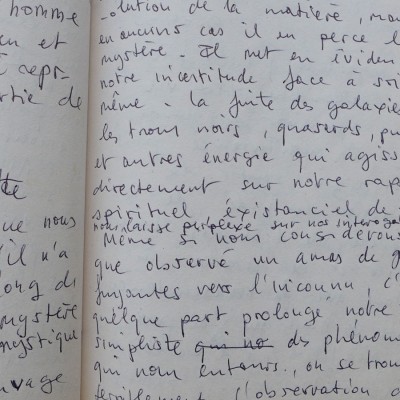 homme
en et
repr-
rtie de
que nous
'il n'a
long di
mystère
mystique
uvage
-olution de la matière, mai
en aucuns cas il en perce l
mystère. Il met en éviden
notre incertitude face à soi
même. la fuite des galaxies
les trous noirs, quasards, pu
et autres énergie qui agiss
directement sur notre rap
spirituel éxistanciel de
nous laisse perplexe sur nos interoga
Même si nous considérons
que observé un amas de g
fuyantes vers l'inconnu, c'
quelque part prolongé notre
simpliste qui no des phénom
qui nous entoure., on se trou
l'observation d